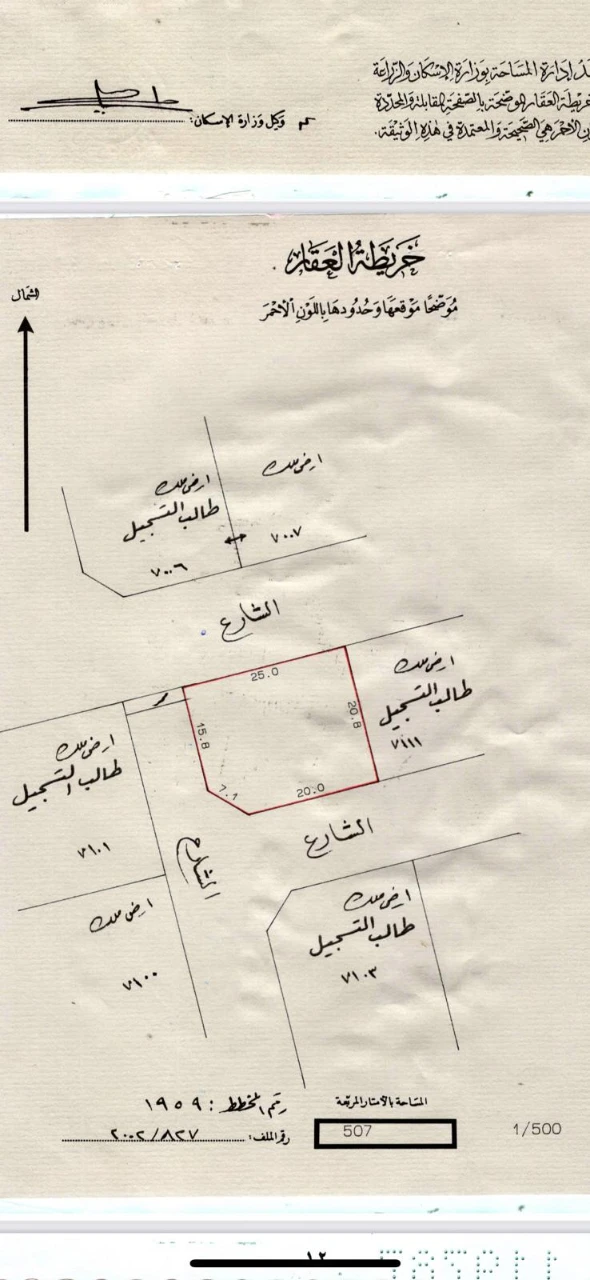 إدارة المساحة بوزارة الإسكان والزراعة
خريطة العقار الموضحة بالصفحة المقابلة والمحددة
هي الصحيحة والمعتمدة في هذه الوثيقة.
وكيل وزارة الإسكان:
خريطة العقار
الشمال
موضحًا موقعها وحدودها باللون الأحمر
ارض ملك
ارض ملك
طالب التسجيل
٧٠٠٧
٧٠٠٦
الشارع
25.0
ارض ملك
طالب التسجيل
20.8
15.8
٧١١١
ارض ملك
طالب التسجيل
7.1
20.0
الشارع
٧١٠١
الشارع
ارض ملك
ارض ملك
طالب التسجيل
٧١٠٠
٧١٠٣
المساحة بالأمتار المربعة
رقم المخطط: ١٩٥٩
507
1/500
رقم الملف: ٢٠٠٢/٨٢٧
١٢